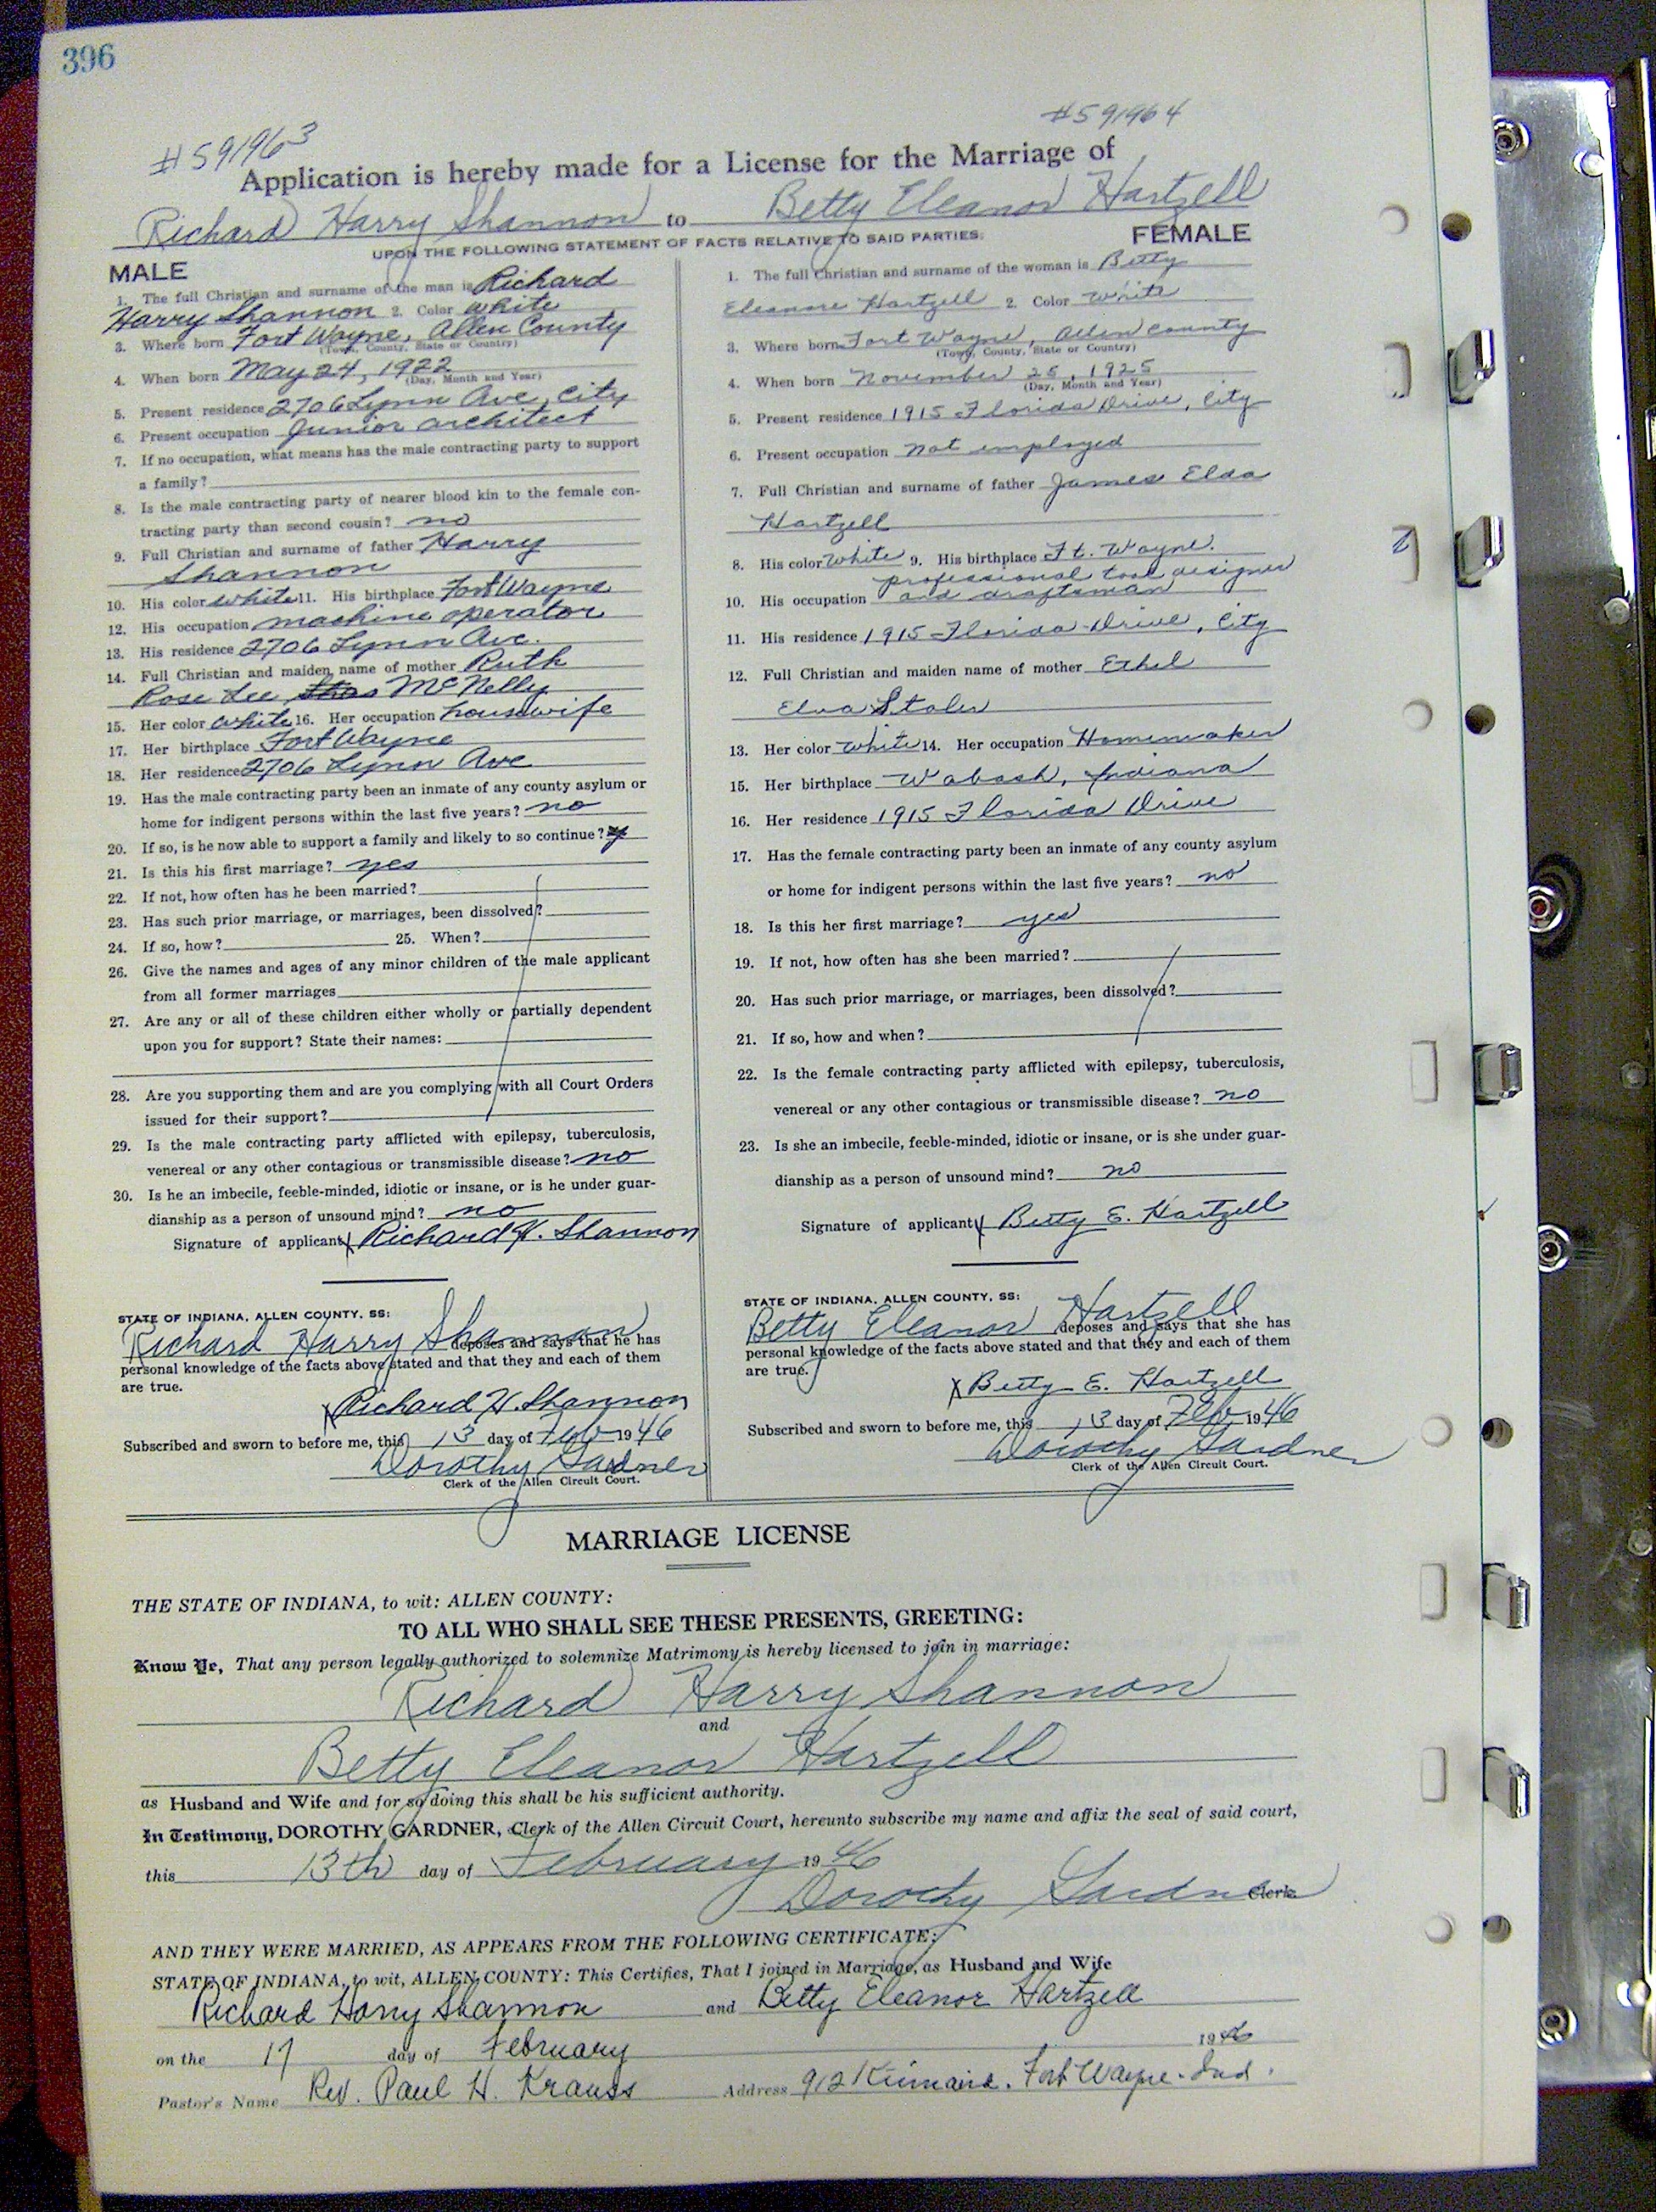 396
#591963
#591964
Application is hereby made for a License for the Marriage of
Richard Harry Shannon to Betty Eleanor Hartzell
UPON THE FOLLOWING STATEMENT OF FACTS RELATIVE TO SAID PARTIES:
MALE
1. The full Christian and surname of the man is Richard
Harry Shannon 2. Color white
3. Where born Fort Wayne, Allen County
(Town, County, State or Country)
4. When born May 24, 1922
(Day, Month and Year)
5. Present residence 2706 Lynn Ave, City
6. Present occupation Junior architect
7. If no occupation, what means has the male contracting party to support
a family?
8. Is the male contracting party of nearer blood kin to the female con-
tracting party than second cousin? no
9. Full Christian and surname of father Harry
Shannon
10. His color white 11. His birthplace Fort Wayne
12. His occupation machine operator
13. His residence 2706 Lynn Ave.
14. Full Christian and maiden name of mother Ruth
Rose Lee McNelly
15. Her color white 16. Her occupation housewife
17. Her birthplace Fort Wayne
18. Her residence 2706 Lynn Ave
19. Has the male contracting party been an inmate of any county asylum or
home for indigent persons within the last five years? no
20. If so, is he now able to support a family and likely to so continue?
21. Is this his first marriage? yes
22. If not, how often has he been married?
23. Has such prior marriage, or marriages, been dissolved?
24. If so, how? 25. When?
26. Give the names and ages of any minor children of the male applicant
from all former marriages
27. Are any or all of these children either wholly or partially dependent
upon you for support? State their names:
28. Are you supporting them and are you complying with all Court Orders
issued for their support?
29. Is the male contracting party afflicted with epilepsy, tuberculosis,
venereal or any other contagious or transmissible disease? no
30. Is he an imbecile, feeble-minded, idiotic or insane, or is he under guar-
dianship as a person of unsound mind? no
Signature of applicant x Richard H. Shannon
STATE OF INDIANA, ALLEN COUNTY, SS:
Richard Harry Shannon deposes and says that he has
personal knowledge of the facts above stated and that they and each of them
are true.
x Richard H. Shannon
Subscribed and sworn to before me, this 13 day of Feb 1946
Dorothy Gardner
Clerk of the Allen Circuit Court.
FEMALE
1. The full Christian and surname of the woman is Betty
Eleanore Hartzell 2. Color white
3. Where born Fort Wayne, Allen County
(Town, County, State or Country)
4. When born November 25, 1925
(Day, Month and Year)
5. Present residence 1915 Florida Drive, City
6. Present occupation not employed
7. Full Christian and surname of father James Eldo
Hartzell
8. His color white 9. His birthplace Ft. Wayne.
professional tool designer
10. His occupation and draftsman
11. His residence 1915 Florida Drive, City
12. Full Christian and maiden name of mother Ethel
Elva Stoler
13. Her color white 14. Her occupation Homemaker
15. Her birthplace Wabash, Indiana
16. Her residence 1915 Florida Drive
17. Has the female contracting party been an inmate of any county asylum
or home for indigent persons within the last five years? no
18. Is this her first marriage? yes
19. If not, how often has she been married?
20. Has such prior marriage, or marriages, been dissolved?
21. If so, how and when?
22. Is the female contracting party afflicted with epilepsy, tuberculosis,
venereal or any other contagious or transmissible disease? no
23. Is she an imbecile, feeble-minded, idiotic or insane, or is she under guar-
dianship as a person of unsound mind? no
Signature of applicant x Betty E. Hartzell
STATE OF INDIANA, ALLEN COUNTY, SS:
Betty Eleanor Hartzell deposes and says that she has
personal knowledge of the facts above stated and that they and each of them
are true.
x Betty E. Hartzell
Subscribed and sworn to before me, this 13 day of Feb 1946
Dorothy Gardner
Clerk of the Allen Circuit Court.
MARRIAGE LICENSE
THE STATE OF INDIANA, to wit: ALLEN COUNTY:
TO ALL WHO SHALL SEE THESE PRESENTS, GREETING:
Know Ye, That any person legally authorized to solemnize Matrimony is hereby licensed to join in marriage:
Richard Harry Shannon
and
Betty Eleanor Hartzell
as Husband and Wife and for so doing this shall be his sufficient authority.
In Testimony, DOROTHY GARDNER, Clerk of the Allen Circuit Court, hereunto subscribe my name and affix the seal of said court,
this 13th day of February 1946
Dorothy Gardner Clerk
AND THEY WERE MARRIED, AS APPEARS FROM THE FOLLOWING CERTIFICATE:
STATE OF INDIANA, to wit, ALLEN COUNTY: This Certifies, That I joined in Marriage, as Husband and Wife
Richard Harry Shannon and Betty Eleanor Hartzell
on the 17 day of February 1946
Pastor's Name Rev. Paul H. Krauss Address 912 Kinnaird. Fort Wayne. Ind.